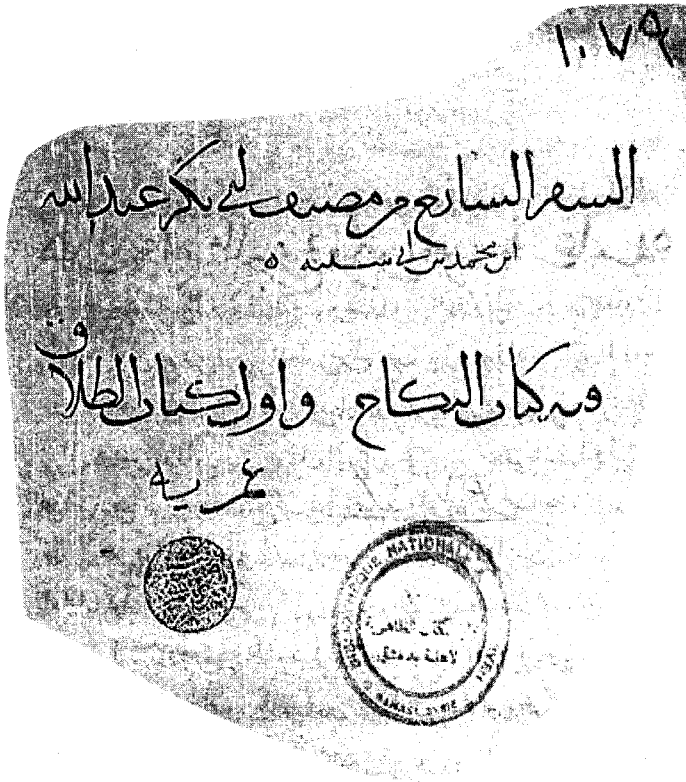 ١٠٧٩
السفر السابع من مصنف ابي بكر عبدالله
ابن محمد بن ابي شيبة ٥
فيه كتاب النكاح واول كتاب الطلاق
عمرية
BIBLIOTHEQUE NATIONALE
الظاهرية
الأهلية بدمشق
DAMAS SYRIE